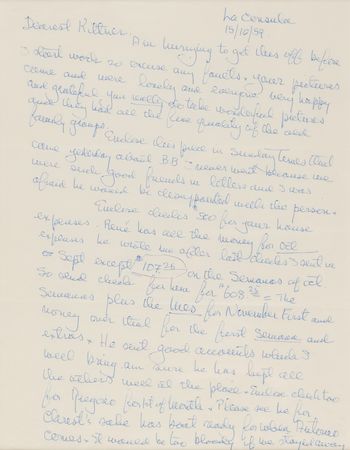 La Consula
15/10/59
Dearest Kittner
Am hurrying to get this off before
I start work so excuse any faults. Your pictures
came and were lovely and everyone very happy
and grateful. You really do take wonderful pictures
and they had all the fine quality of the old
family groups.
Enclose this piece in Sunday Times that
came yesterday about B.B. I never went because we
were such good friends in letters and I was
afraid he would be disappointed with the person.
Enclose checks 500 for your house
expenses. René has all the money for Oct
expenses he wrote me after last checks I sent in
Sept except $107 26 on the Semanas of Oct
So send check for him for $608 = The
Semanas plus the mes for November first and
money over that for the first Semana and
extras. He sent good accounts which I
will bring am sure he has kept all
the others well at the place. Enclose check too
for Gregorio for 1st of month. Please see he for
Christ's sake has boat ready for when Antonio
comes. It would be too bloody if we stayed away